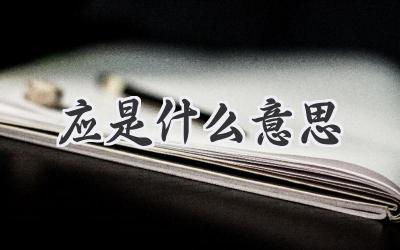 应是什么意思